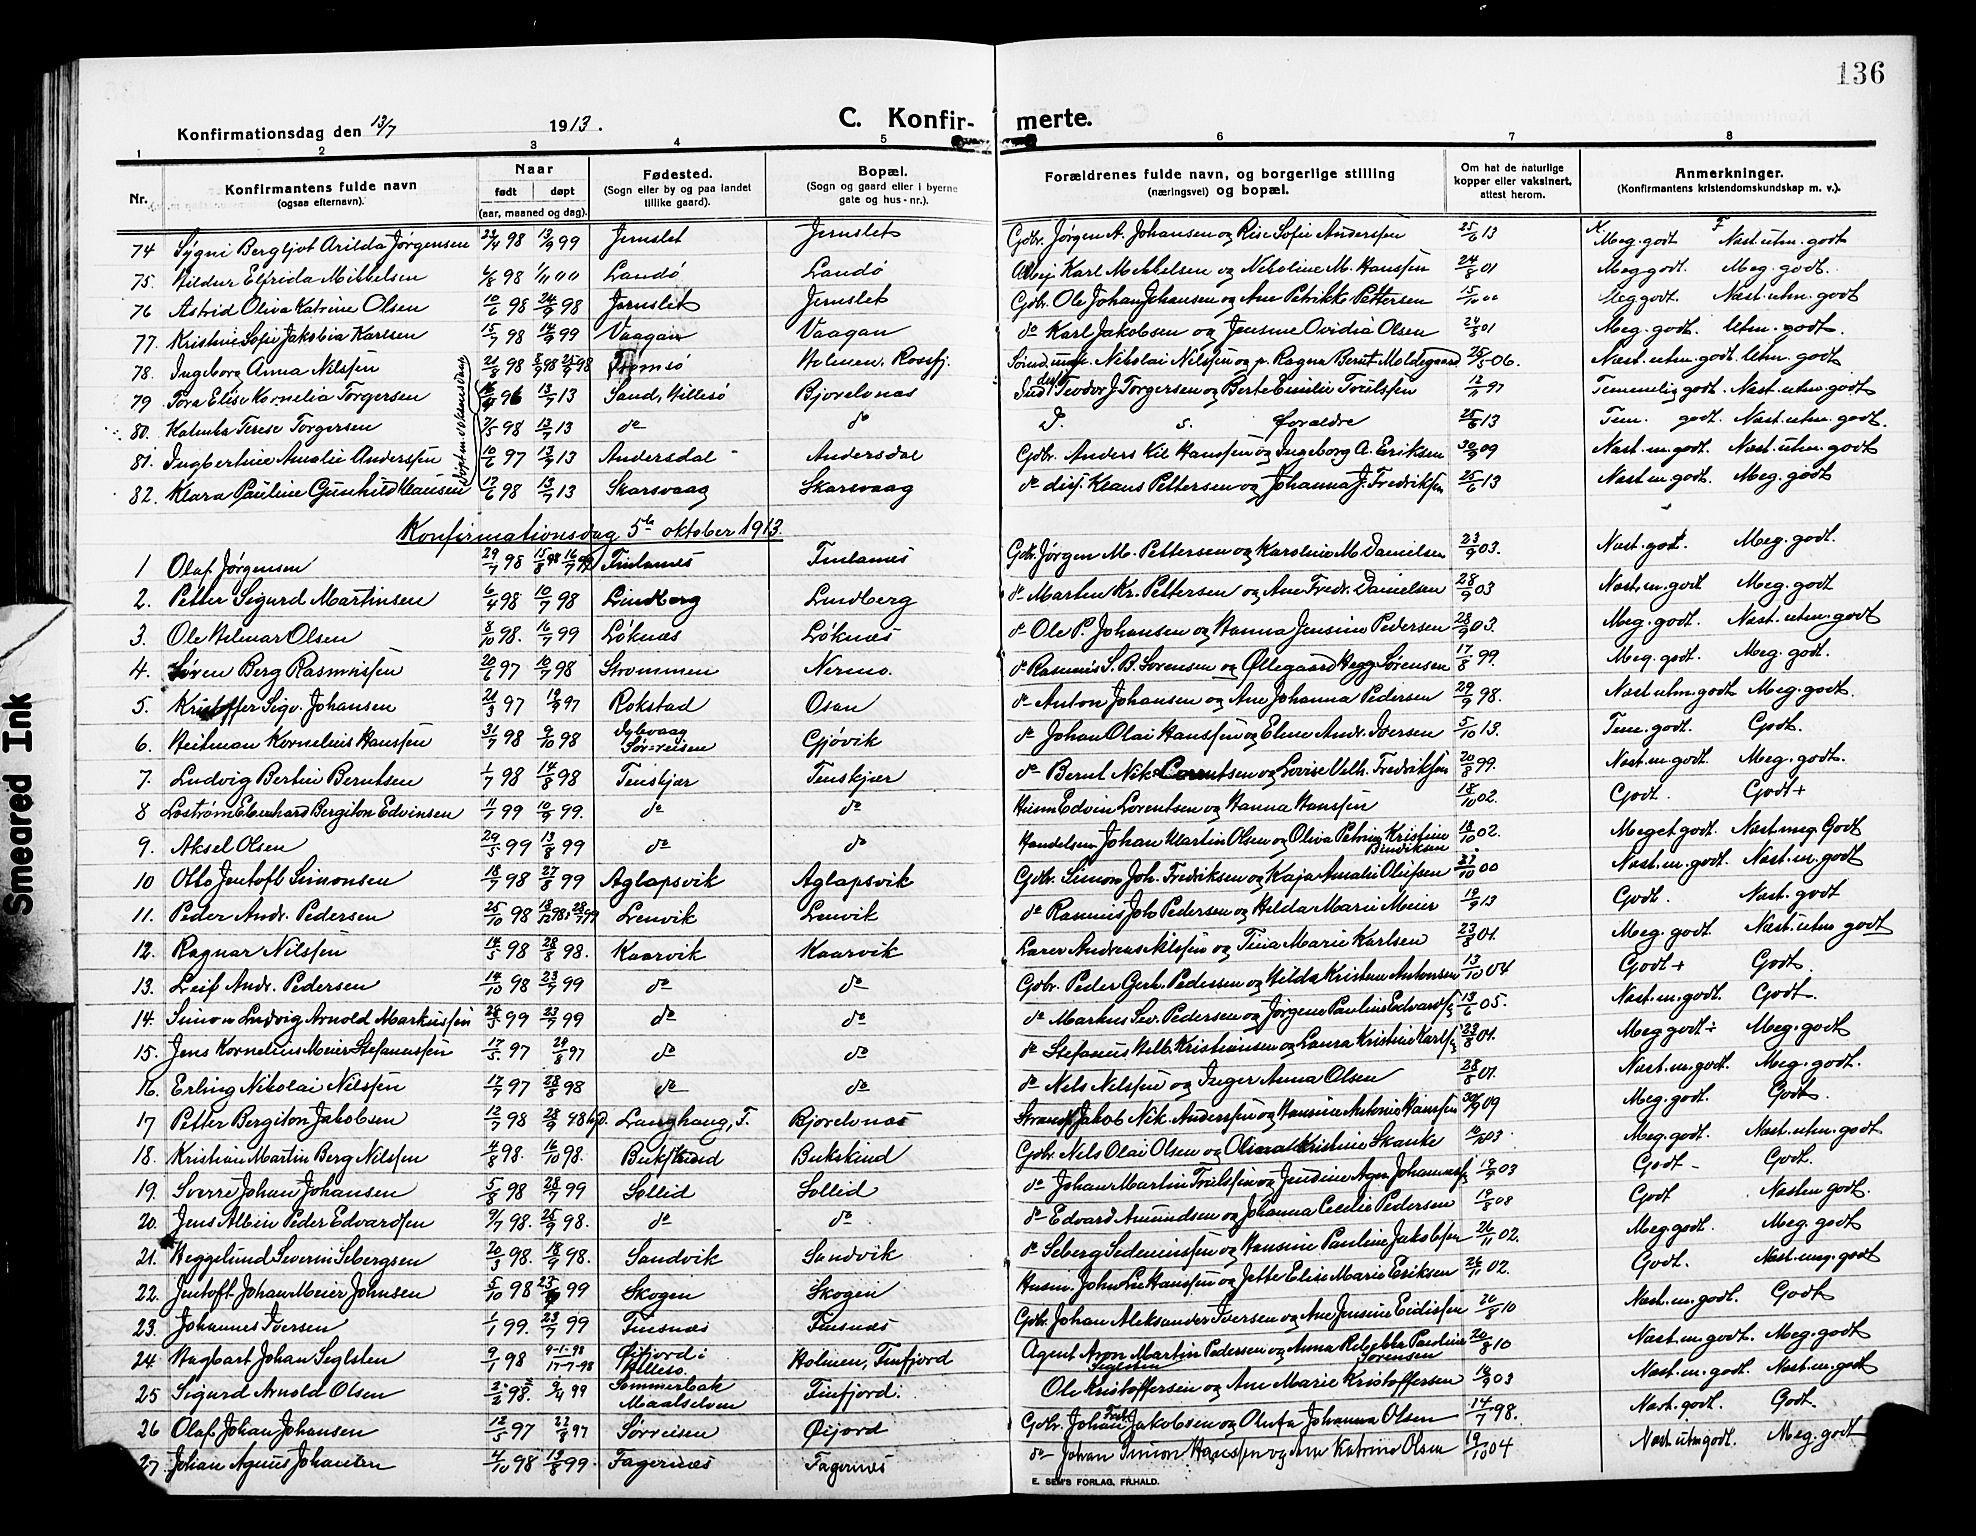 136
Konfirmationsdag den 13/7 1913.
C. Konfirmerte.
1 2 3 4 5 6 7 8
Nr.
Konfirmantens fulde navn
(ogsaa efternavn).
Naar
født døpt
(aar, maaned og dag).
Fødested.
(Sogn eller by og paa landet
tillike gaard).
Bopæl.
(Sogn og gaard eller i byerne
gate og hus-nr.).
Forældrenes fulde navn, og borgerlige stilling
(næringsvei) og bopæl.
Om hat de naturlige
kopper eller vaksinert,
attest herom.
Anmerkninger.
(Konfirmantens kristendomskundskap m. v.).
74 Sygni Bergljot Arilda Jørgensen 98 13/9 99 Jernslet Jernslet Gdbr. Jørgen A. Johansen og Rise Sofie Anderssen 25/6 13 Meg. godt Næst. utm. godt
75. Hildur Elfrida Mikkelsen 98 Landø Landø Karl Mikkelsen og Nikoline M. Hanssen 24/8 01 Meg godt. Meg. godt.
76 Astrid Oliva Katrine Olsen 10/6 98 24/9 98 Jernslet Jernslet Gdbr. Ole Johan Johansen og Ane Petrikke Pettersen 15/10 00 Meg godt. Næst. utm. godt
77. Kristine Sofie Jakobia Karlsen 15/7 98 14/9 99 Vaagan Vaagan do Karl Jakobsen og Jensine Ovidia Olsen 24/8 01 Meg. godt. Utm. godt.
78. Ingeborg Anna Nilssen 21/8 98 Tromsø Holmen, Rossfj. Nikolai Nilssen og p. Ragna Bernt. Moldegaard 06. Næst. utm. godt Utm. godt
79 Tora Elise Kornelia Torgersen 96 13/7 13 Sand, Hillesø Bjorelvnæs Teodor J. Torgersen og Berte Emilie Trulssen 97 Temmelig godt. Næst. utm. godt
80. Kalmba Terese Torgersen 98 13/7 13 do do D. s. foraldre 25/6 13 Tem. godt. Næst. utm. godt.
81. Ingbertine Amalie Anderssen 10/6 97 13/7 13 Andersdal Andersdal Gdbr. Anders Kil Hanssen og Ingeborg A. Eriksen 30/9 09 Næst. m. godt. Næst. utm. godt
82. Klara Pauline Gunhild Klausen 17/6 98 13/7 13 Skarsvaag Skarsvaag do Klaus Pettersen og Johanna J. Fredriksen 25/6 13 Næst m. godt. Meg. godt
Konfirmationsdag 5te oktober 1913.
1 Olaf Jørgensen 29/7 98 15/8 98 Finlanæs Finlanæs Gdbr. Jørgen M. Pettersen og Karoline M. Danielsen 23/9 03. Næst. godt. Meg. godt.
2. Petter Sigurd Martinsen 6/4 98 10/7 98 Lindberg Lindberg do Martin Kr. Pettersen og Ane Fredr. Danielsen 28/9 03 Næst. m. godt Meg. godt
3. Ole Hilmar Olsen 8/10 98. 16/7 99 Løknæs Løknæs do Ole P. Johansen og Hanna Jensine Pedersen 28/9 03. Meg. godt. Næst. utm. godt
4. Søren Berg Rasmussen 20/6 97 10/7 98 Strommen Nermo. do Rasmus S. B. Sørensen og Øllegaard Hegg Sørensen 17/8 99. Meg. godt. Meg. godt.
5. Kristoffer Sigv. Johansen 21/3 97 97 Rokstad Osan do Anton Johansen og Ane Johanna Pedersen 29/9 98. Næst utm. godt Meg. godt.
6. Heitman Kornelius Hanssen 31/7 98 9/10 98 Sør-reisen Gjøvik do Johan Olai Hanssen og Eline Andr. Iversen 5/10 13. Tem. godt. Godt.
7. Ludvig Bertin Berntsen 1/7 98 14/8 98 Tenskjær Tenskjær do Bernt Nik. Lorentsen og Lovise Velh. Fredriksen 20/8 99. Næst. m. godt. Meg. godt.
8 Lostrøm Ebenhard Bergiton Edvinsen 11/7 99 10/9 99. do do Edvin Lorentsen og Hanna Hanssen 18/10 02. Godt. Godt+
9. Aksel Olsen 29/5 99 13/8 99 do do Handelsm. Johan Martin Olsen og Oliva Petrine Kristine Bendiksen 18/10 02. Meget godt. Næst meg. Godt
10 Otto Jentoft Simonsen 18/7 98 27/8 99 Aglapsvik Aglapsvik Gdbr. Simon Joh. Fredriksen og Kaja Amalie Olufsen 27/10 00 Næst. m. godt. Næst. m. godt
11. Peder Andr. Pedersen 25/10 98 Lenvik Lenvik do Rasmus Joh. Pedersen og Hilda Marie Meier 19/9 13 Godt. Næst. godt
12. Ragnar Nilssen 14/5 98 28/8 98. Kaarvik Kaarvik Lærer Andreas Nilssen og Tina Marie Karlsen 23/8 01. Meg. godt Næst. utm godt
13. Leif Andr. Pedersen 14/10 98 23/7 99 do do Gdbr. Peder Gerh. Pedersen og Hilda Kristine Antonsen 13/10 04 Godt + Godt.
14. Simon Ludvig Arnold Markussen 28/5 99 23/7 99 do do do Markus Sev. Pedersen og Jørgine Pauline Edvardsen 13/6 05. Næst. m. godt. Godt.
15. Jens Kornelius Meier Stefanussen 17/5 97 29/8 97 do do do Stefanus Helb. Kristiansen og Laura Kristine Karlsen 23/8 01. Meg godt ÷ Meg. godt
16. Erling Nikolai Nilssen 17/7 97 28/8 98 do do do Nils Nilssen og Inger Anna Olsen 28/8 01. Næst. m. godt. Meg. godt.
17 Petter Bergiton Jakobsen 12/7 98 28/9 98 Langhaug, T. Bjorelvnæs Jakob Nik. Anderssen og Hansine Antonie Hanssen 30/9 09 Meg. godt. Godt.
18. Kristian Martin Berg Nilssen 4/8 98. 16/10 98. Bukskind Bukskind Gdbr. Nils Olai Olsen og Kristine Skanke 03. Meg. godt. Næst. utm. godt
19. Sverre Johan Johansen 5/8 98 28/7 99 Sollid Sollid do Johan Martin Trulssen og Jendine Agn. Johannessen 03 Godt - Godt.
20. Jens Albin Peder Edvardsen 9/7 98. 25/9 98. do do do Edvard Amundsen og Johanna Cecilie Pedersen 19/8 08 Godt Næsten godt.
21. Heggelund Severin Sebergsen 20/3 98. 18/9 98. Sandvik Sandvik do Seberg Sedeniussen og Hansine Pauline Jakobsen 26/11 02. Meg godt. Meg. godt
22. Jentoft Johan Meier Johnsen 5/10 98 99 Skogen Skogen Husm. John Lu Hanssen og Jette Elise Marie Eriksen 26/11 02. Godt. Næst. meg. godt
23. Johannes Iversen 1/1 99. 23/7 99 Finsnæs Finsnæs Gdbr. Johan Aleksander Iversen og Ane Jensine Eidissen 20/8 10 Næst. m. godt. Godt
24 Hagbart Johan Seglsten 9/1 98 9-1-98 17-7-98 Øifjord i Hillesø. Holmen, Finfjord Agent Aron Martin Pedersen Seglsten og Anna Rebekka Pauline Sørensen 20/8 10 Næst. m. godt. Meg. godt
25 Sigurd Arnold Olsen 98. 99 Sommerbak Maalselven Finfjord. Ole Kristoffersen og Ane Marie Kristoffersen 03 Næst. m. godt. Næst. m. godt
26 Olaf Johan Johansen 12/5 97 22/8 97 Sørreisen Øijord Gdbr. Johan Jakobsen og Olufa Johanna Olsen 14/7 98. Næst. godt. Godt.
27. Johan Agnus Johansen 4/10 98 13/8 99. Fagernæs Fagernæs do Johan Simon Hanssen og Ane Katrine Olsen 19/10 04 Næst. utm godt. Meg. godt
E. SEM'S FORLAG, FR.HALD.
Smeared Ink